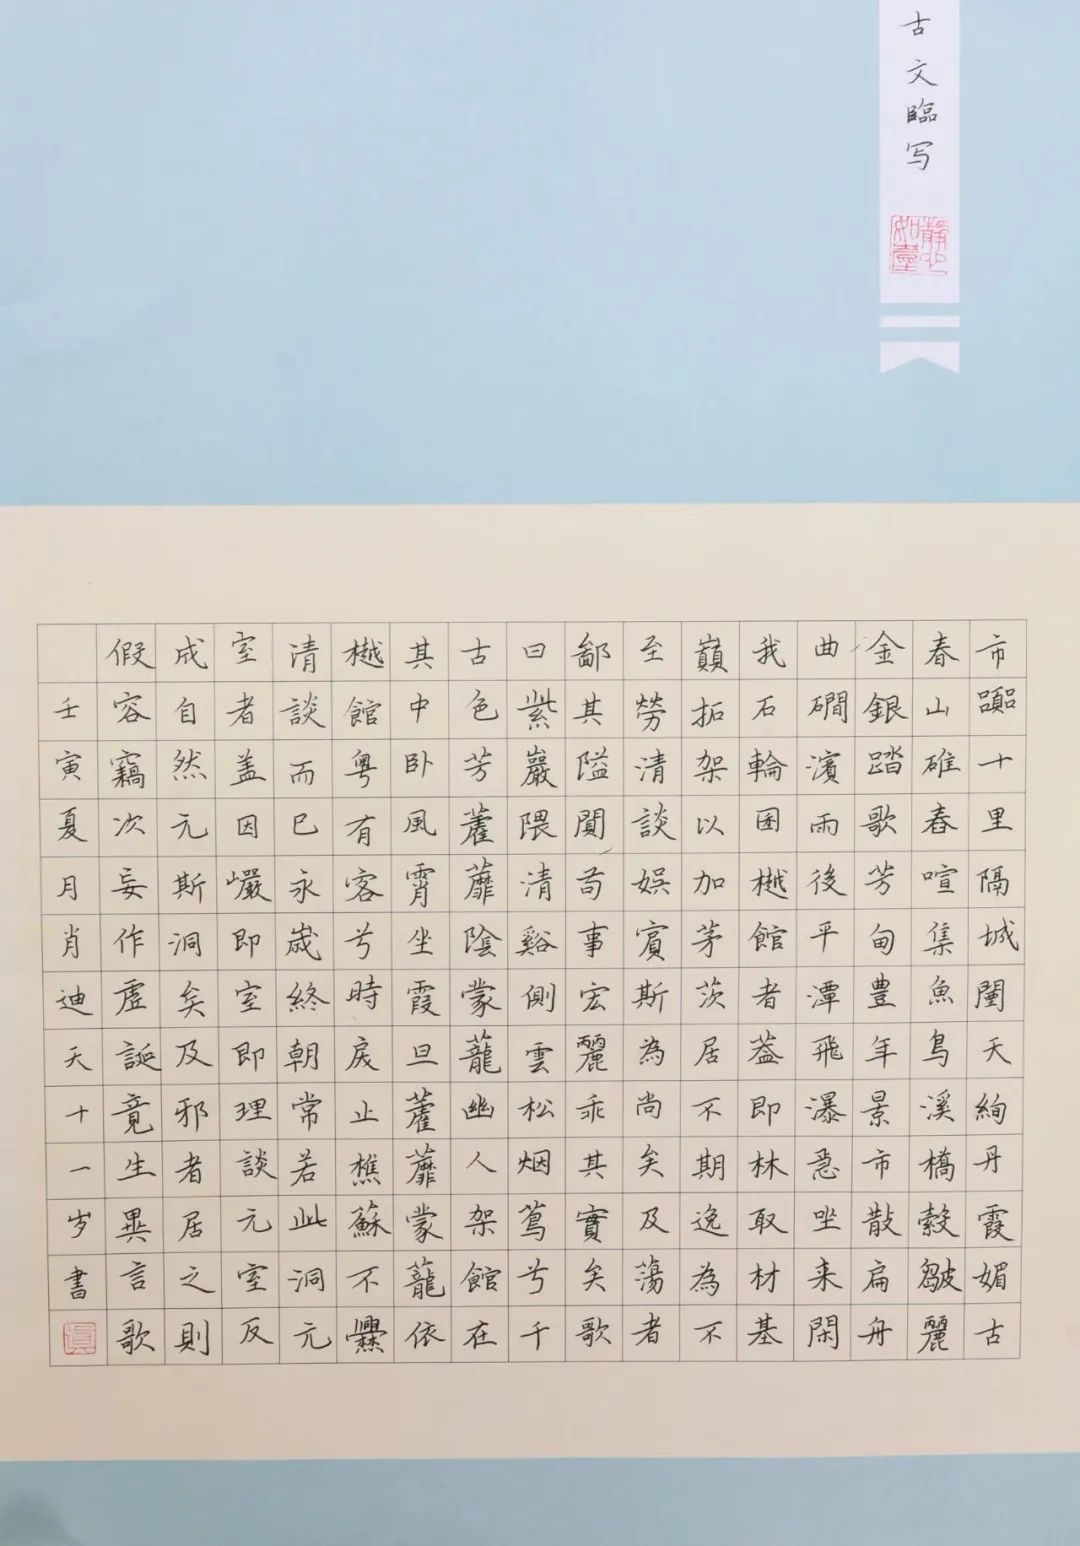 古文臨写
市嚣十里隔城闉天絢丹霞媚古
春山碓舂喧集魚鳥溪橋縠皺麗
金銀踏歌芳甸豊年景市散扁舟
曲磵濱雨後平潭飛瀑急坐来閑
我石輪囷樾館者葢即林取材基
巔拓架以加茅茨居不期逸為不
至勞清談娱賓斯為尚矣及蕩者
鄙其隘闃苟事宏麗乖其實矣歌
曰紫巖隈清谿側雲松烟蔦兮千
古色芳藿蘼陰蒙蘢幽人架館在
其中卧風霄坐霞旦藿蘼蒙蘢依
樾館粤有客兮時戾止樵蘇不爨
清談而已永歳終朝常若此洞元
室者盖因巗即室即理談元室反
成自然元斯洞矣及邪者居之則
假容竊次妄作虛誕竟生異言歌
壬寅夏月肖迪天十一岁書